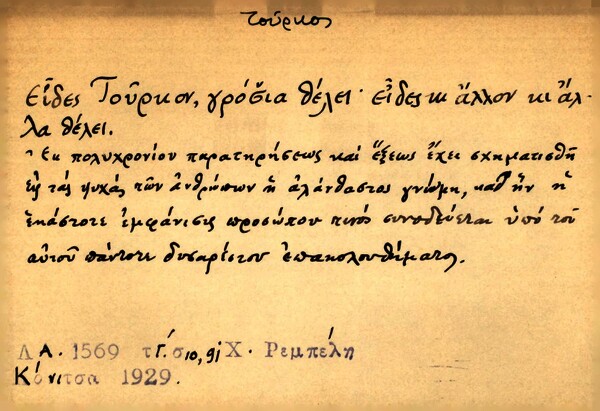 Τούρκος
Εἶδες Τοῦρκον, γρόσια θέλει· εἶδες κι ἄλλον κι ἄλ-
λα θέλει.
Ἐκ πολυχρονίου παρατηρήσεως καὶ ἕξεως ἔχει σχηματισθῆ
εἰς τὰς ψυχὰς τῶν ἀνθρώπων ἡ ἀλάνθαστος γνώμη, καθ' ἣν ἡ
ἑκάστοτε ἐμφάνισις προσώπου τινός συνοδεύεται ὑπό τοῦ
αὐτοῦ πάντοτε δυσαρέστου ἐπακολουθήματος.
Λ.Α. 1569 τΓ΄, σ10, 91 Χ. Ρεμπέλη
Κόνιτσα 1929.